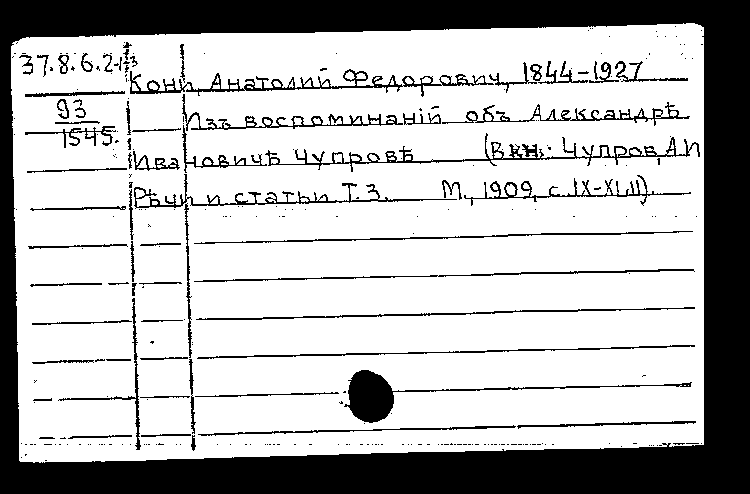 37.8.6.2-1-3
Кони, Анатолий Федорович, 1844-1927
93
1545.
Изъ воспоминаній объ Александрѣ
Ивановичѣ Чупровѣ (В кн.: Чупров, А.И
Рѣчи и статьи Т.3. М., 1909, с. IX-XLII).